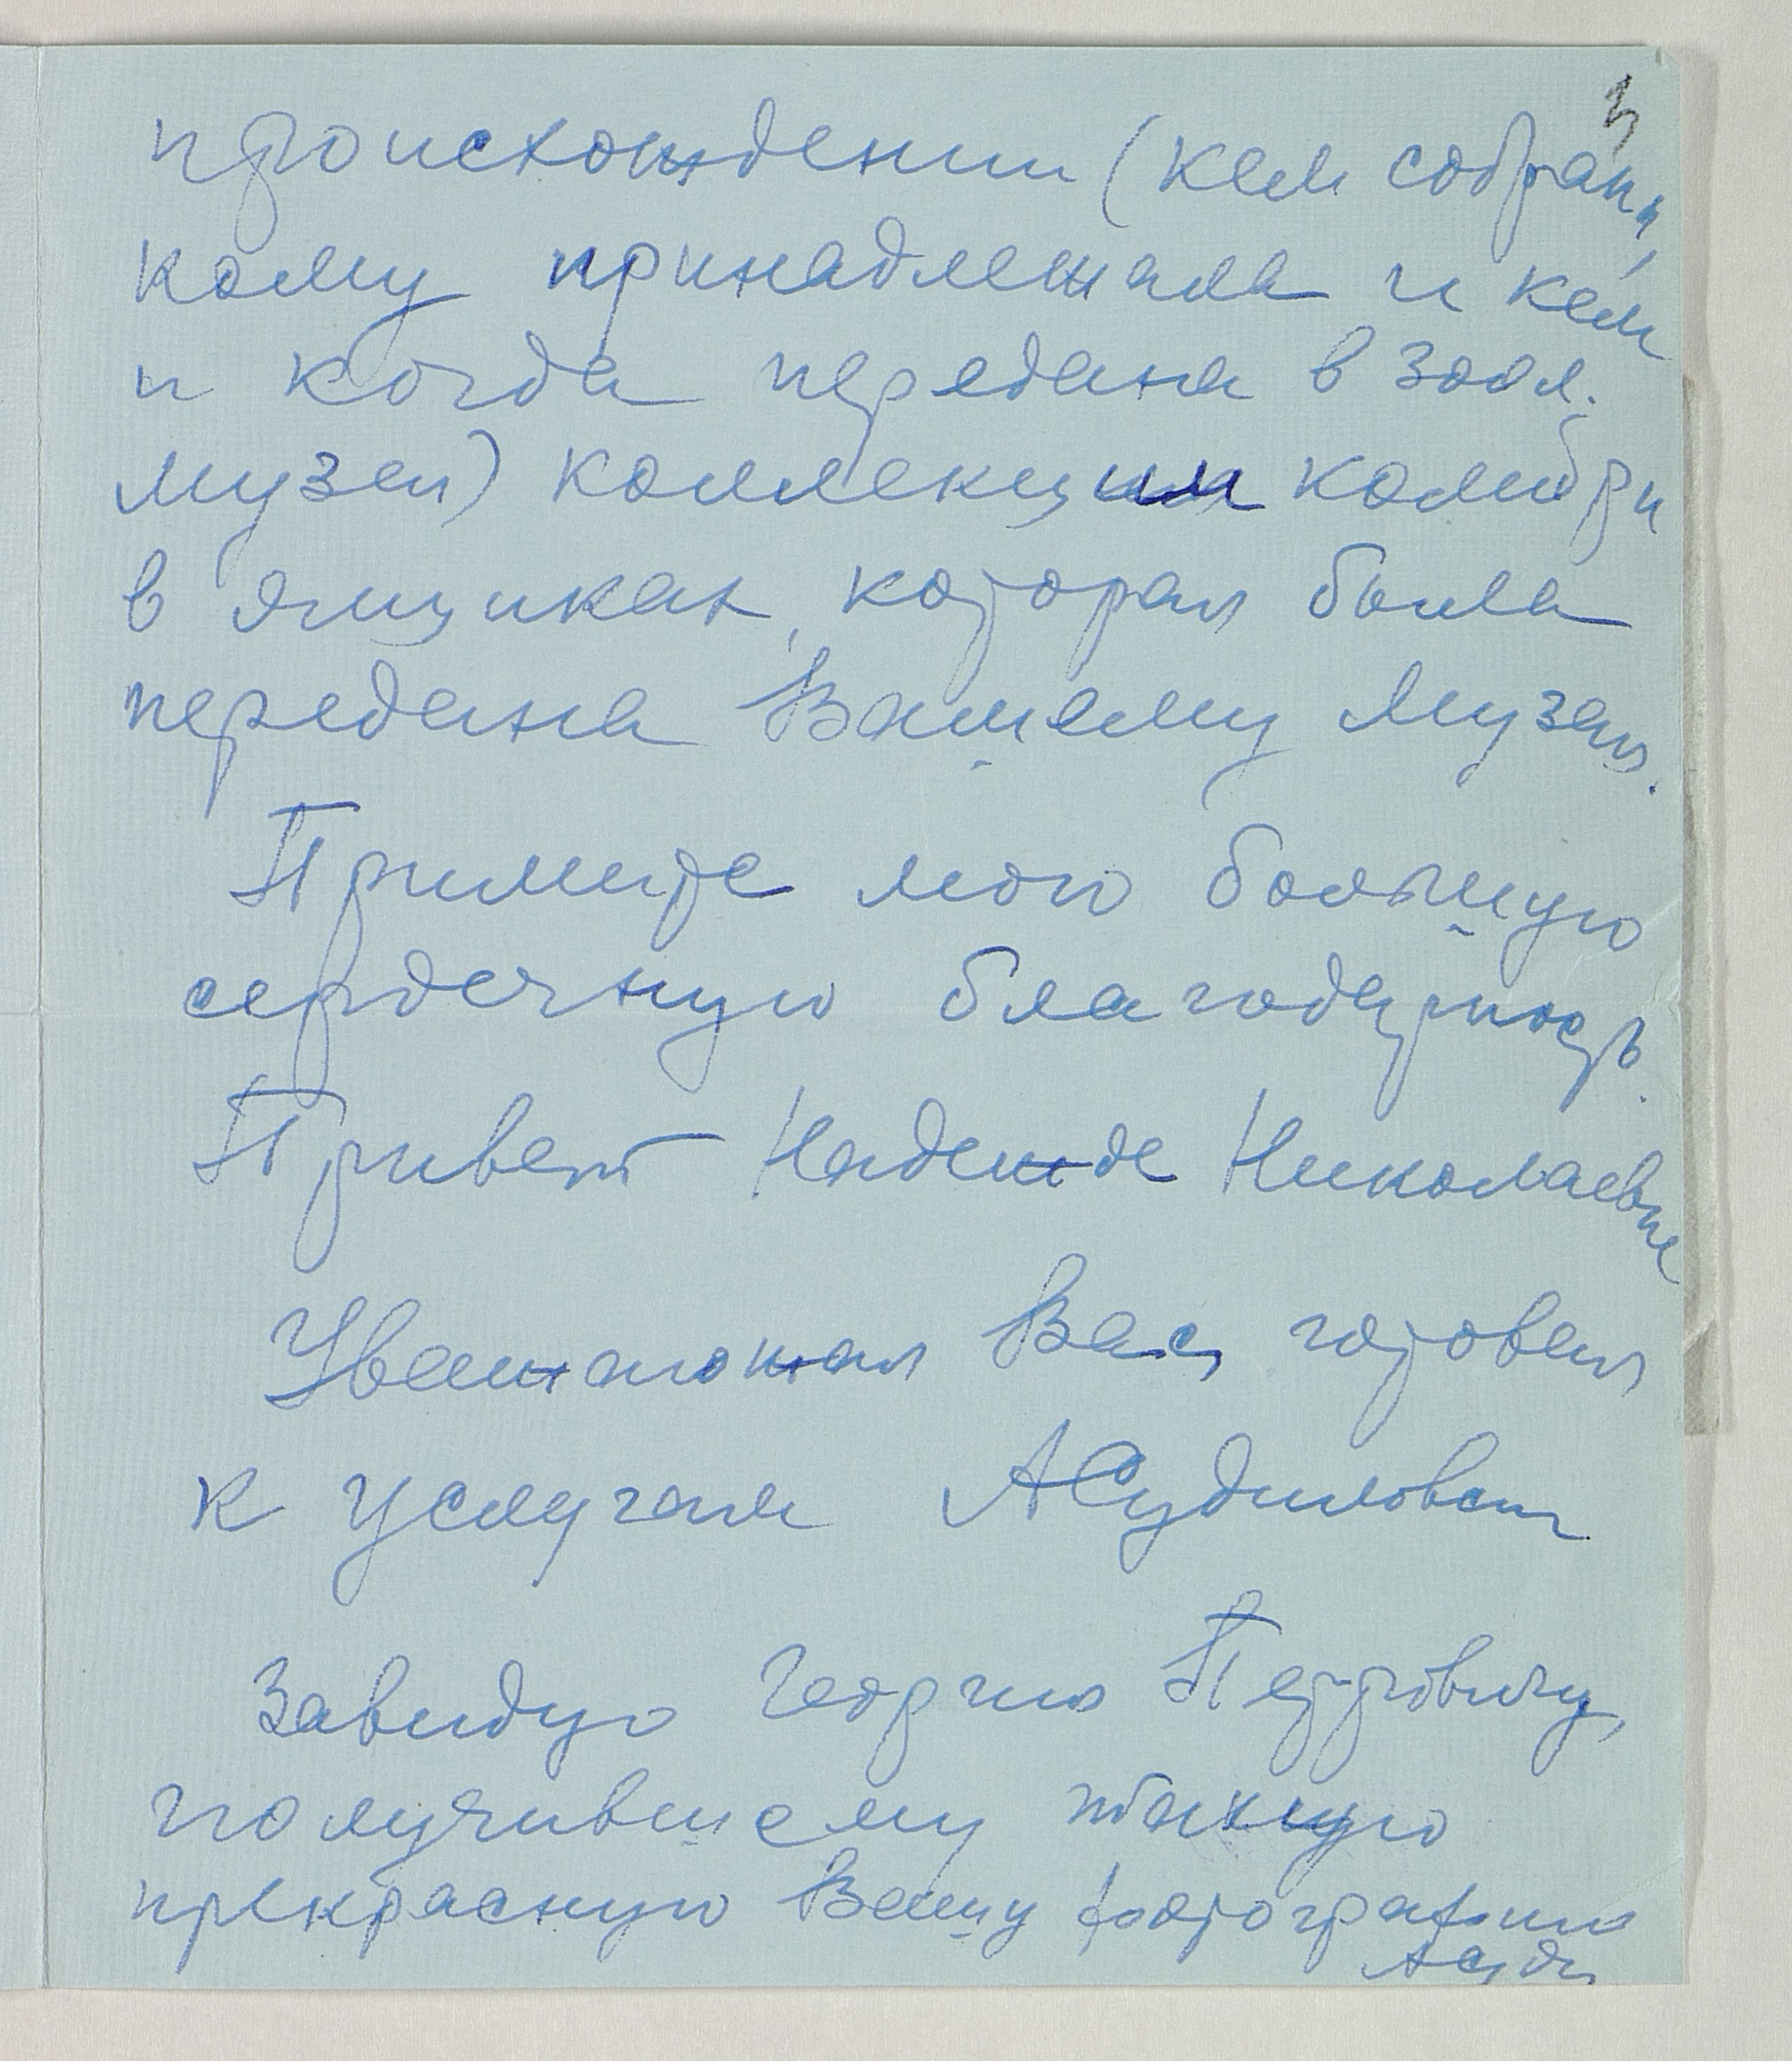 3
происхождении (кем собрана,
кому принадлежала и кем
и когда передана в Зоол.
музей) коллекции колибри
в ящиках, которая была
передана Вашему Музею.
Примите мою большую
сердечную благодарность.
Привет Надежде Николаевне
Уважающая Вас, готовая
к услугам АСудиловская
Завидую Георгию Петровичу,
получившему такую
прекрасную Вашу фотографию
АСуд